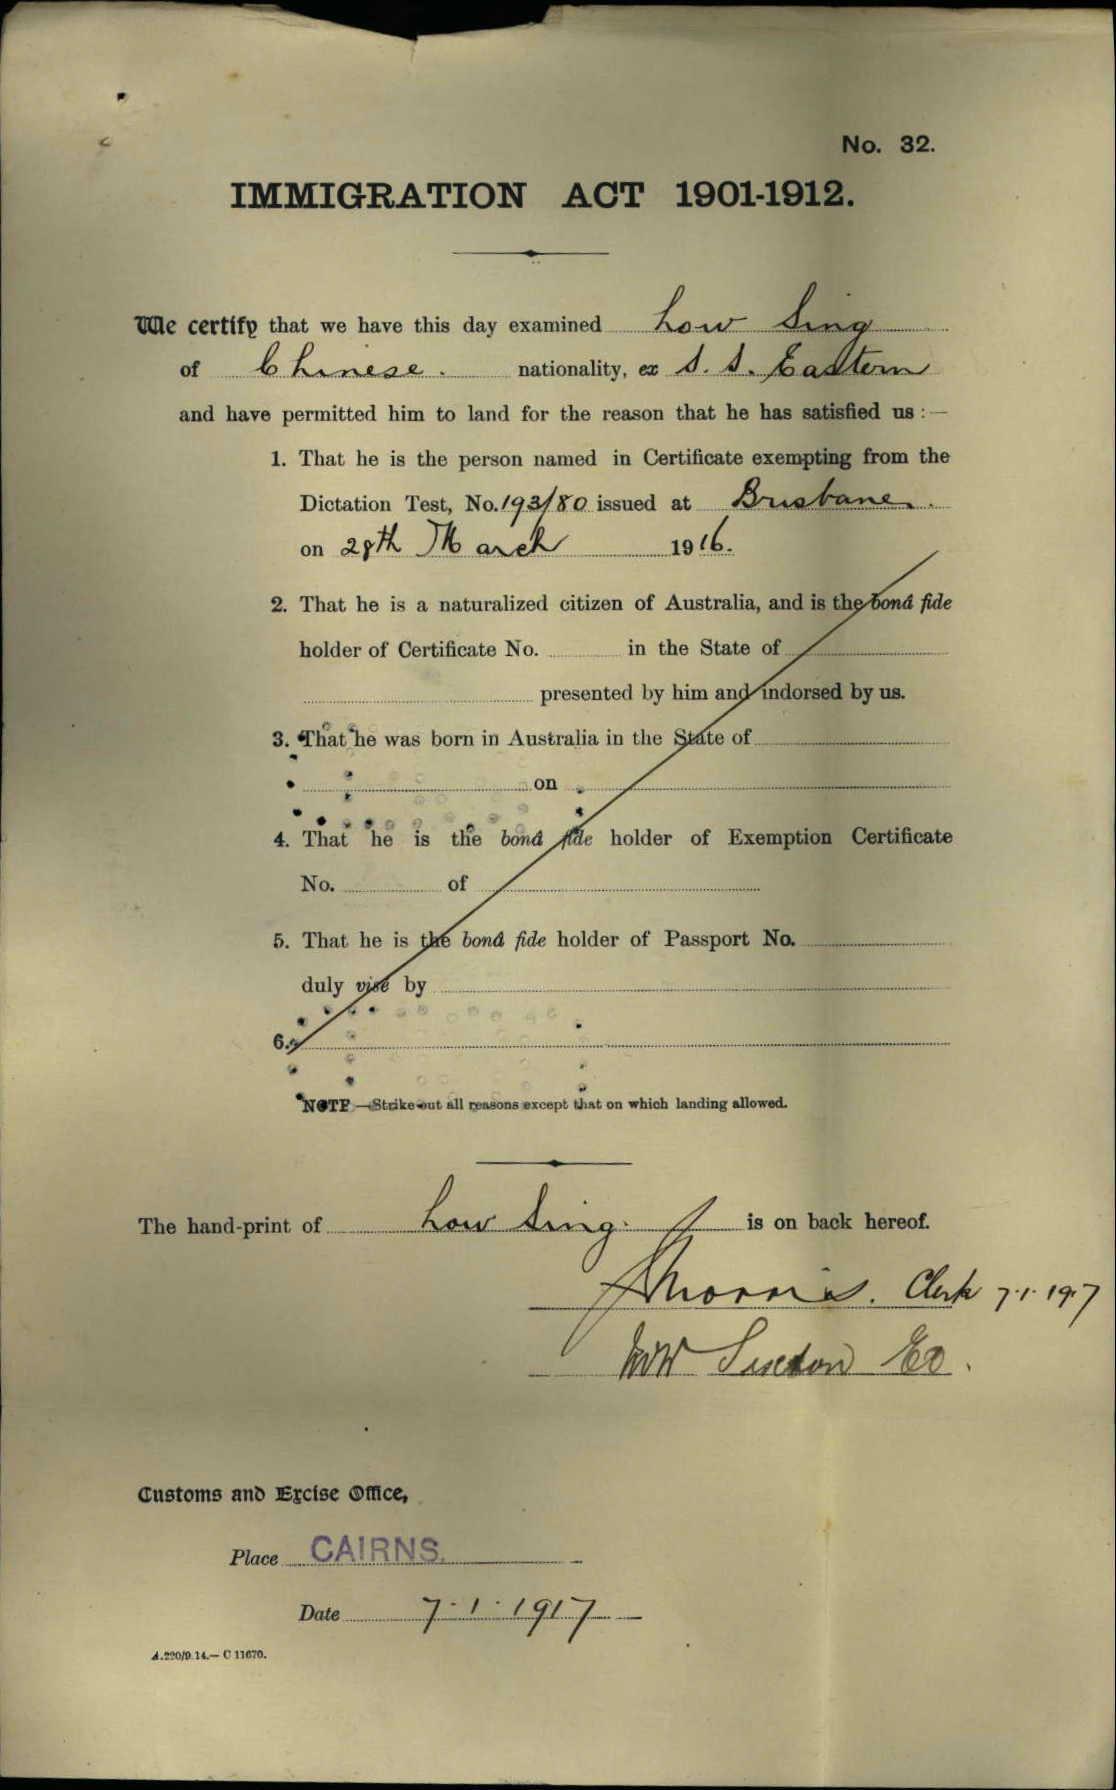 No. 32.
IMMIGRATION ACT 1901-1912.
We certify that we have this day examined How Sing
of Chinese. nationality, ex S. S. Eastern
and have permitted him to land for the reason that he has satisfied us :—
1. That he is the person named in Certificate exempting from the
Dictation Test, No. 193/80 issued at Brisbane.
on 28th March 1916.
2. That he is a naturalized citizen of Australia, and is the bonâ fide
holder of Certificate No. in the State of
presented by him and indorsed by us.
3. That he was born in Australia in the State of
on
4. That he is the bonâ fide holder of Exemption Certificate
No. of
5. That he is the bonâ fide holder of Passport No.
duly visé by
6.
NOTE.—Strike out all reasons except that on which landing allowed.
The hand-print of How Sing. is on back hereof.
Morris. Clerk 7.1.1917
Sexton EO.
Customs and Excise Office,
Place CAIRNS.
Date 7.1.1917
A.220/9.14.—C 11670.